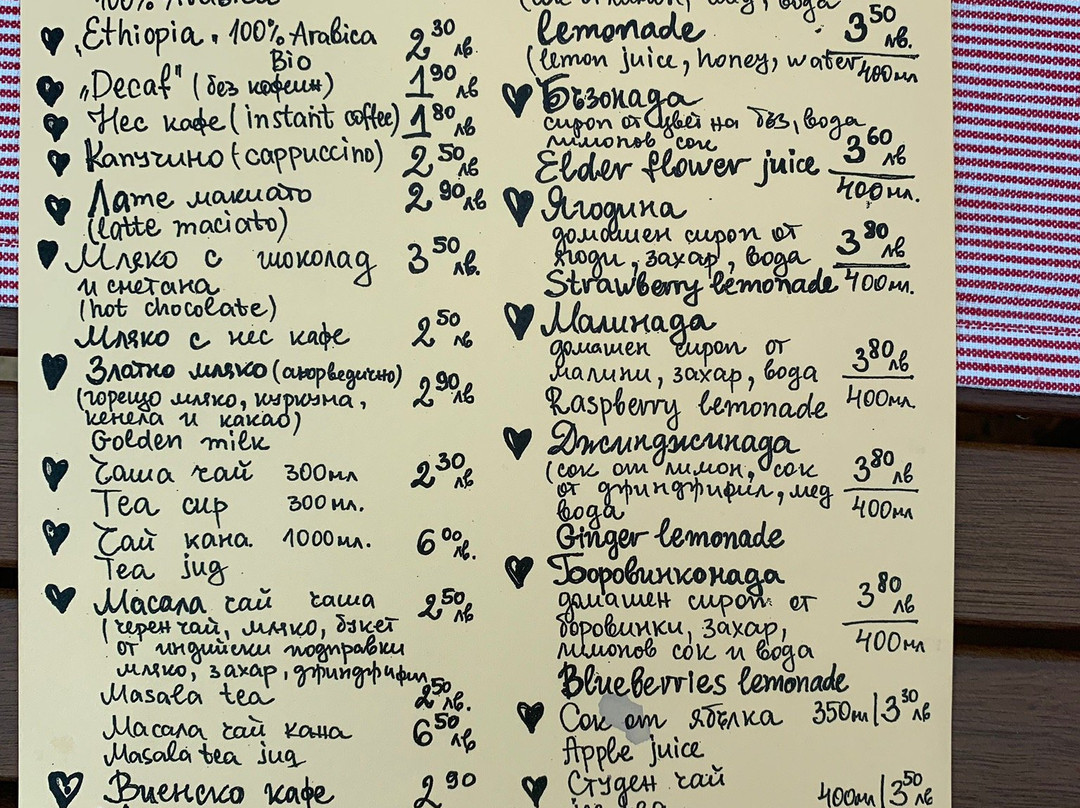 100% Arabica
„Ethiopia. 100% Arabica 2 30 лв.
Bio
„Decaf" (без кофеин) 1 90 лв
Нес кафе (instant coffee) 1 80 лв
Капучино (cappuccino) 2 50 лв
Лате макиато 2 90 лв
(latte maciato)
Мляко с шоколад 3 50 лв.
и сметана
(hot chocolate)
Мляко с нес кафе 2 50 лв
Златно мляко (аюрведично) 2 90 лв
(горещо мляко, куркума,
кенела и какао)
Golden milk
Чаша чай 300мл 2 30 лв.
Tea cup 300мл.
Чай кана. 1000мл. 6 00 лв.
Tea jug
Масала чай чаша 2 50 лв
(черен чай, мляко, букет
от индийски подправки
мляко, захар, джинджифил
Masala tea 2 50 лв.
Масала чай кана 6 50 лв
Masala tea jug
Виенско кафе 2 90
вода
lemonade 3 50 лв.
(lemon juice, honey, water 400мл
Бъзонада
сироп от цвят на бъз, вода
лимонов сок
Elder flower juice 3 60 лв
400мл.
Ягодина
домашен сироп от 3 80 лв
ягоди, захар, вода
Strawberry lemonade 400мл.
Малинада
домашен сироп от 3 80 лв
малини, захар, вода
Raspberry lemonade 400мл.
Джинджинада
(сок от лимон, сок 3 80 лв
от джинджифил, мед 400мл
вода
Ginger lemonade
Боровинконада
домашен сироп от 3 80 лв
боровинки, захар, 400мл
лимонов сок и вода
Blueberries lemonade
Сок от ябълка 350мл | 3 30 лв
Apple juice
Студен чай 400мл | 3 50 лв